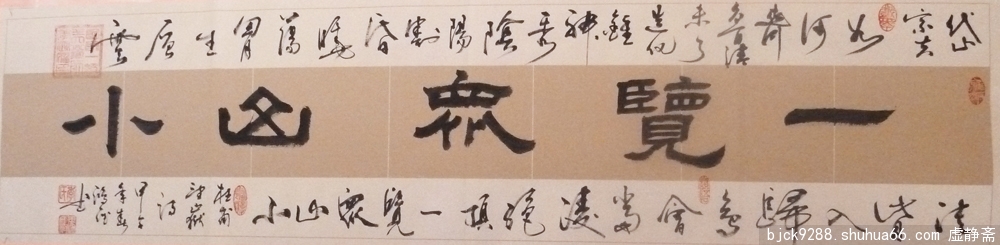 岱宗夫如何齊魯青未了造化鍾神秀陰陽割昏曉蕩胸生層雲
一覽眾山小
決眥入歸鳥會當凌絕頂一覽眾山小
杜甫
望嶽
詩
甲午
年春
bjck9288.shuhua66.com 虚静斋